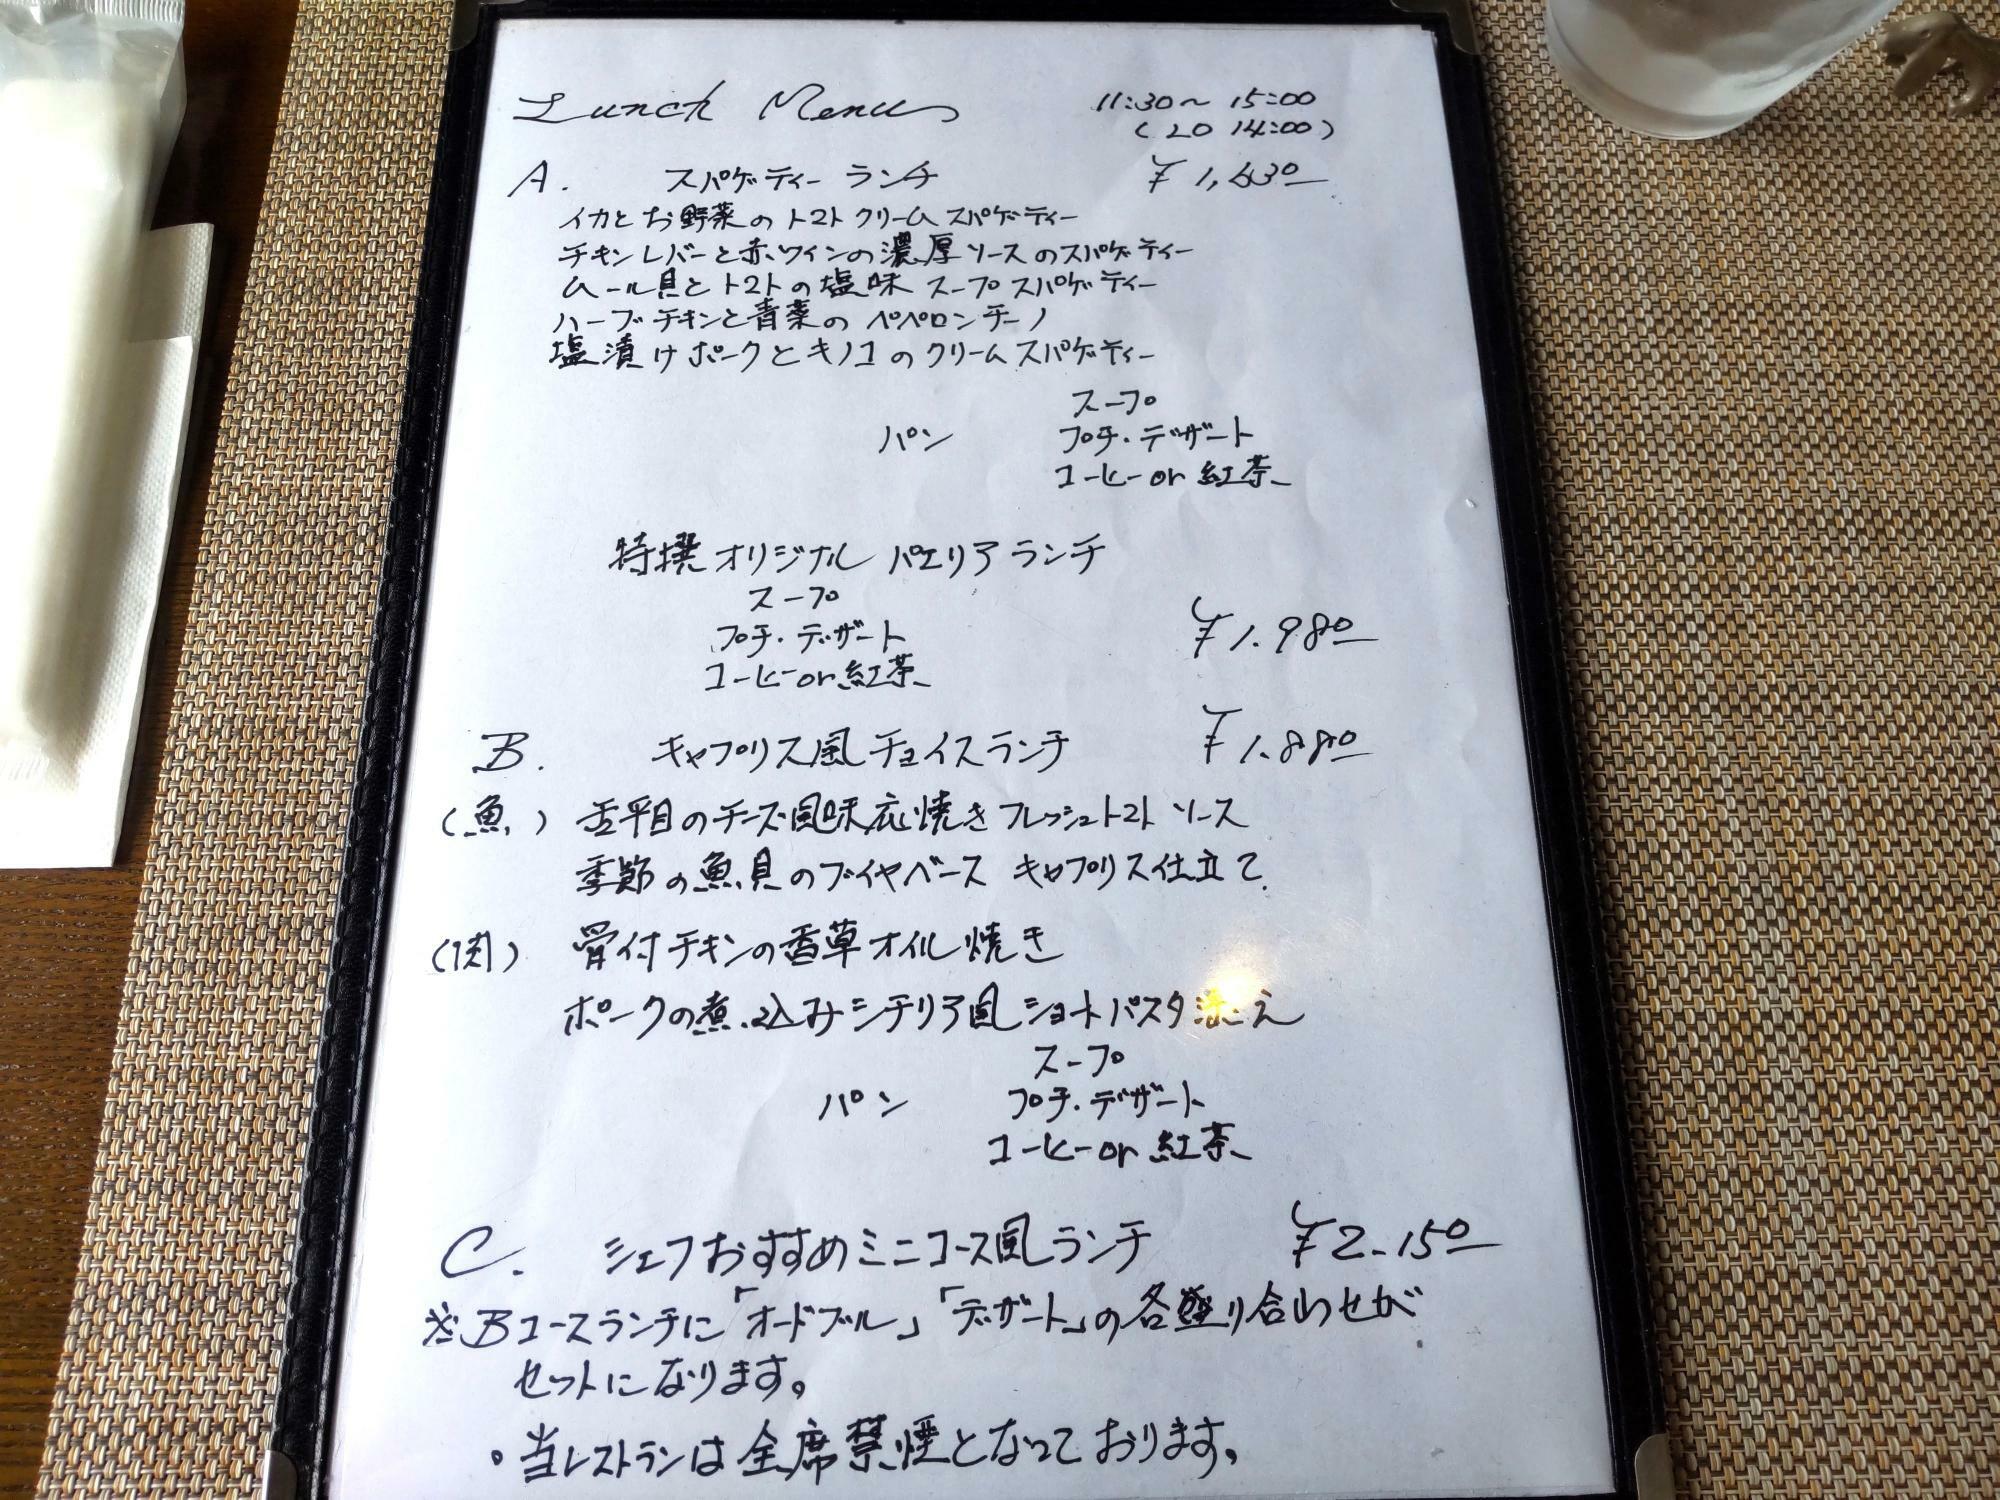 Lunch Menu 11:30～15:00
(LO 14:00)
A. スパゲティー ランチ ¥1,630
イカとお野菜のトマトクリームスパゲティー
チキンレバーと赤ワインの濃厚ソースのスパゲティー
ムール貝とトマトの塩味スープスパゲティー
ハーブチキンと青菜のペペロンチーノ
塩漬けポークとキノコのクリームスパゲティー
スープ
パン プチ・デザート
コーヒーor紅茶
特撰オリジナル パエリアランチ
スープ
プチ・デザート ¥1.980
コーヒーor紅茶
B. キャプリス風チョイスランチ ¥1.880
(魚) 舌平目のチーズ風味衣焼きフレッシュトマトソース
季節の魚貝のブイヤベース キャプリス仕立て
(肉) 骨付チキンの香草オイル焼き
ポークの煮込みシチリア風ショートパスタ添え
スープ
パン プチ・デザート
コーヒーor紅茶
C. シェフおすすめミニコース風ランチ ¥2.150
※Bコースランチに「オードブル」「デザート」の各盛り合わせが
セットになります。
・当レストランは全席禁煙となっております。